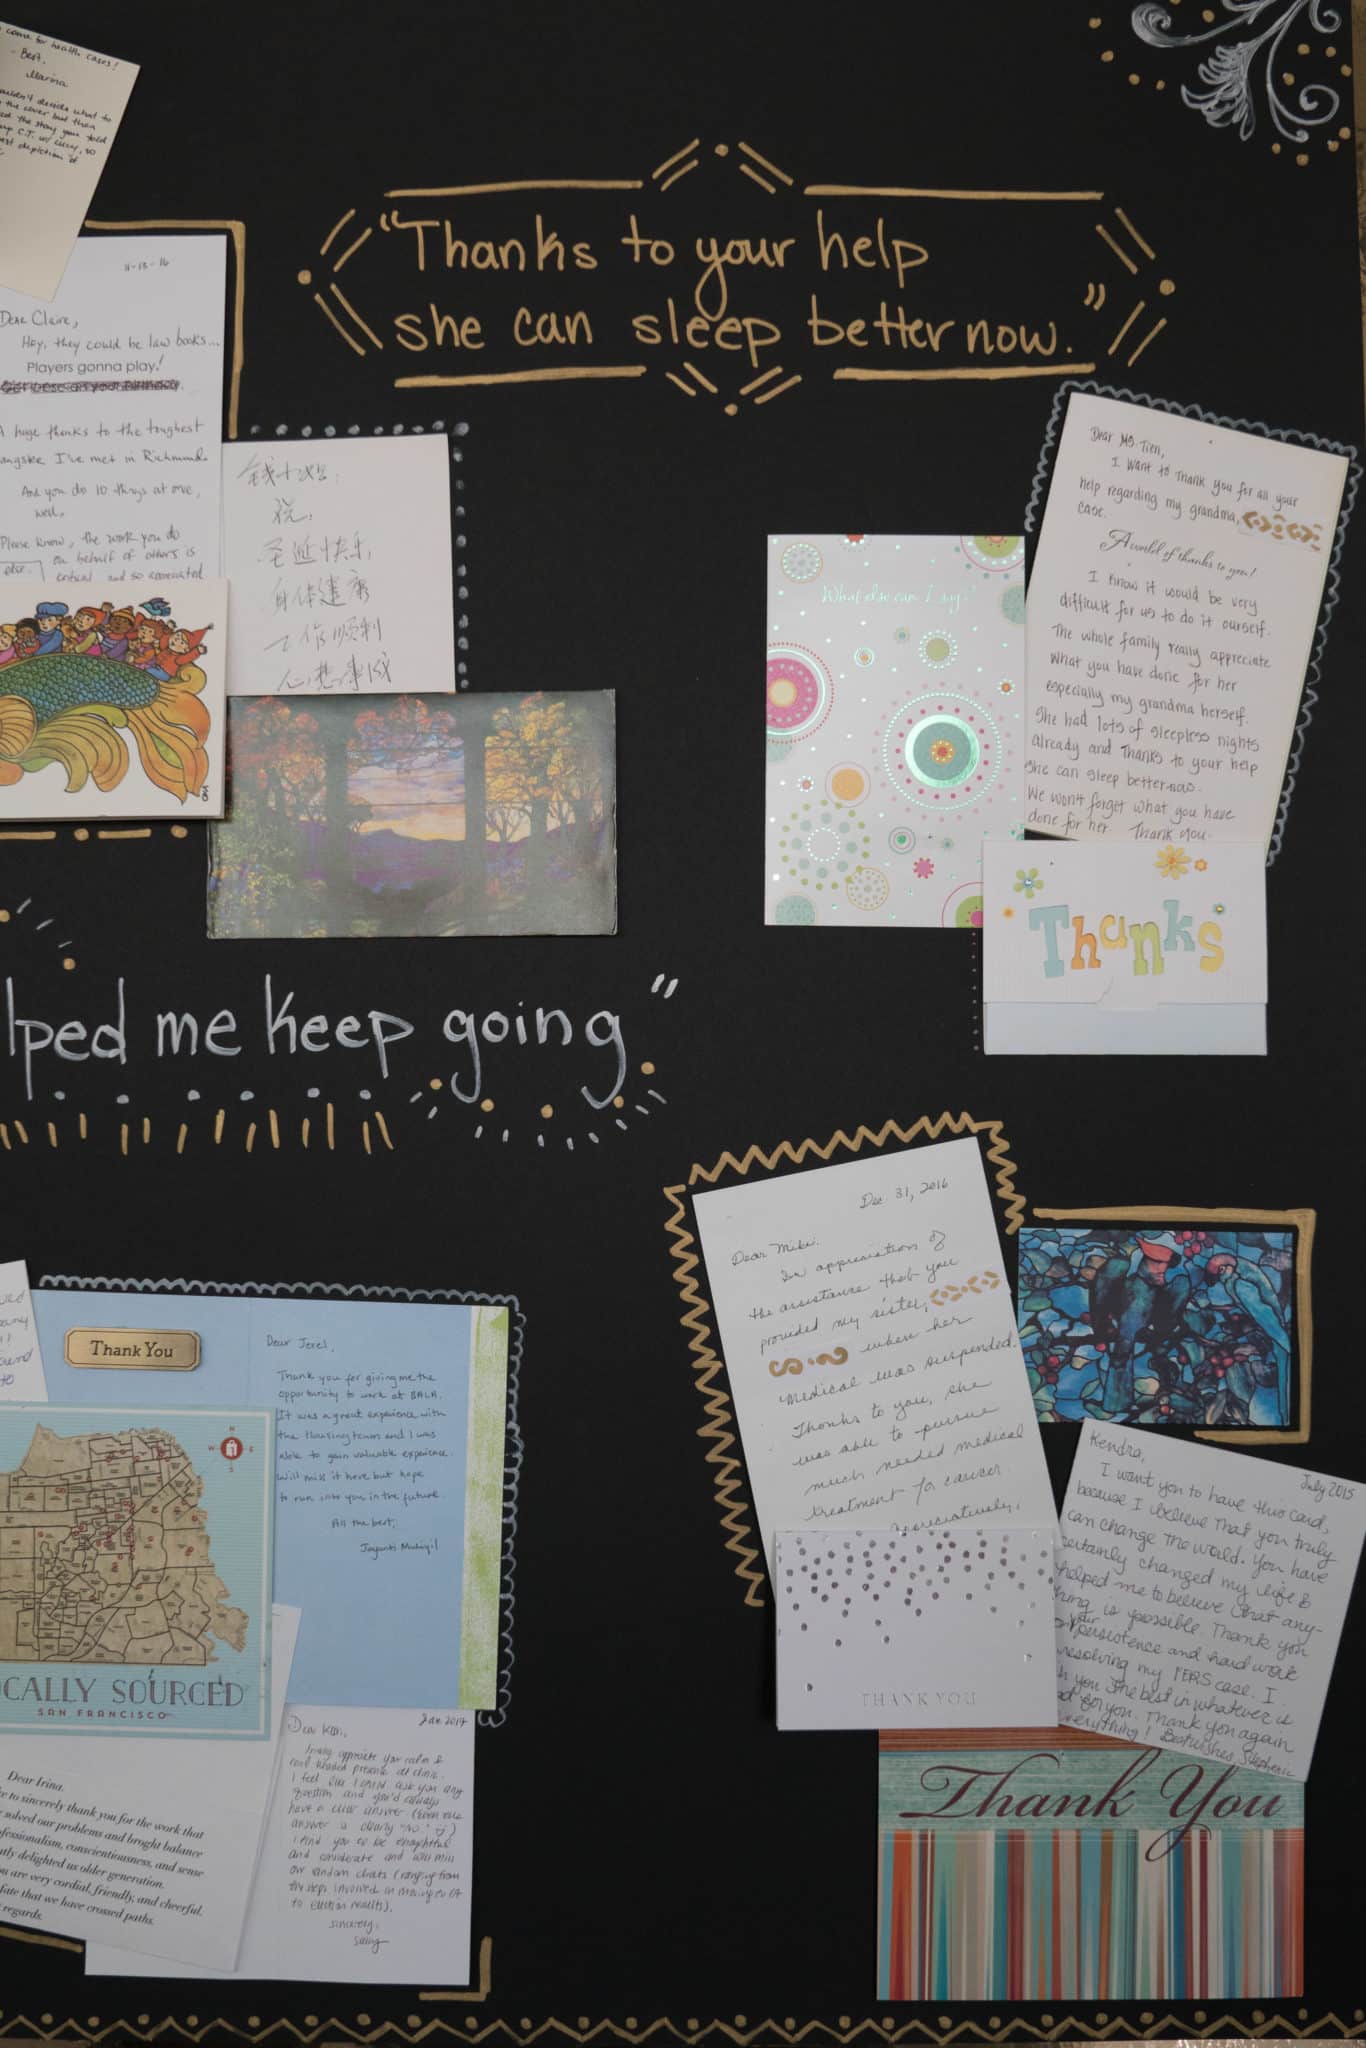 come for health cases!
- Best,
Marina
couldn't decide what to
the cover but then
the story you told
C.T. w/
depiction of
"Thanks to your help
she can sleep better now."
11-13-16
Dear Claire,
Hey, they could be law books...
Players gonna play!
A huge thanks to the toughest
I've met in Richmond.
And you do 10 things at one,
well.
Please know, the work you do
on behalf of others is
critical and so appreciated
else.
祝:
圣诞快乐
身体健康
工作顺利
心想事成
Dear Ms. Tien,
I want to thank you for all your
help regarding my grandma,
case.
A world of thanks to you!
I know it would be very
difficult for us to do it ourself.
The whole family really appreciate
what you have done for her
especially my grandma herself.
She had lots of sleepless nights
already and thanks to your help
she can sleep better now.
We won't forget what you have
done for her. Thank you.
What else can I say?
Thanks
lped me keep going"
Dec 31, 2016
Dear Mike:
In appreciation of
the assistance that you
provided my sister,
where her
Medical was suspended.
Thanks to you, she
was able to pursue
much needed medical
treatment for cancer.
Appreciatively,
THANK YOU
Thank You
Dear Jerel,
Thank you for giving me the
opportunity to work at BALA.
It was a great experience with
the Housing team and I was
able to gain valuable experience.
Will miss it here but hope
to run into you in the future.
All the best,
Jayanti
N
W E
S
OCALLY SOURCED
SAN FRANCISCO
July 2015
Kendra,
I want you to have this card,
because I believe that you truly
can change the world. You have
certainly changed my life &
helped me to believe that any-
thing is possible. Thank you
your
persistence and hard work
resolving my case. I
you the best in whatever is
for you. Thank you again
everything! Best wishes, Stephanie
Thank You
Dear Irina.
to sincerely thank you for the work that
solved our problems and broght balance
ofessionalism, conscientiousness, and sense
tly delighted us older generation.
ou are very cordial, friendly, and cheerful.
fate that we have crossed paths.
regards.
Jan 2017
Dear
I really appreciate your calm &
level headed presence at clinic.
I feel like I could ask you any
question and you'd always
have a clear answer (even if the
answer is clearly "NO" :))
I find you to be
and considerate and will miss
our random chats (ranging from
the steps involved in moving to LA
to election results).
sincerely,